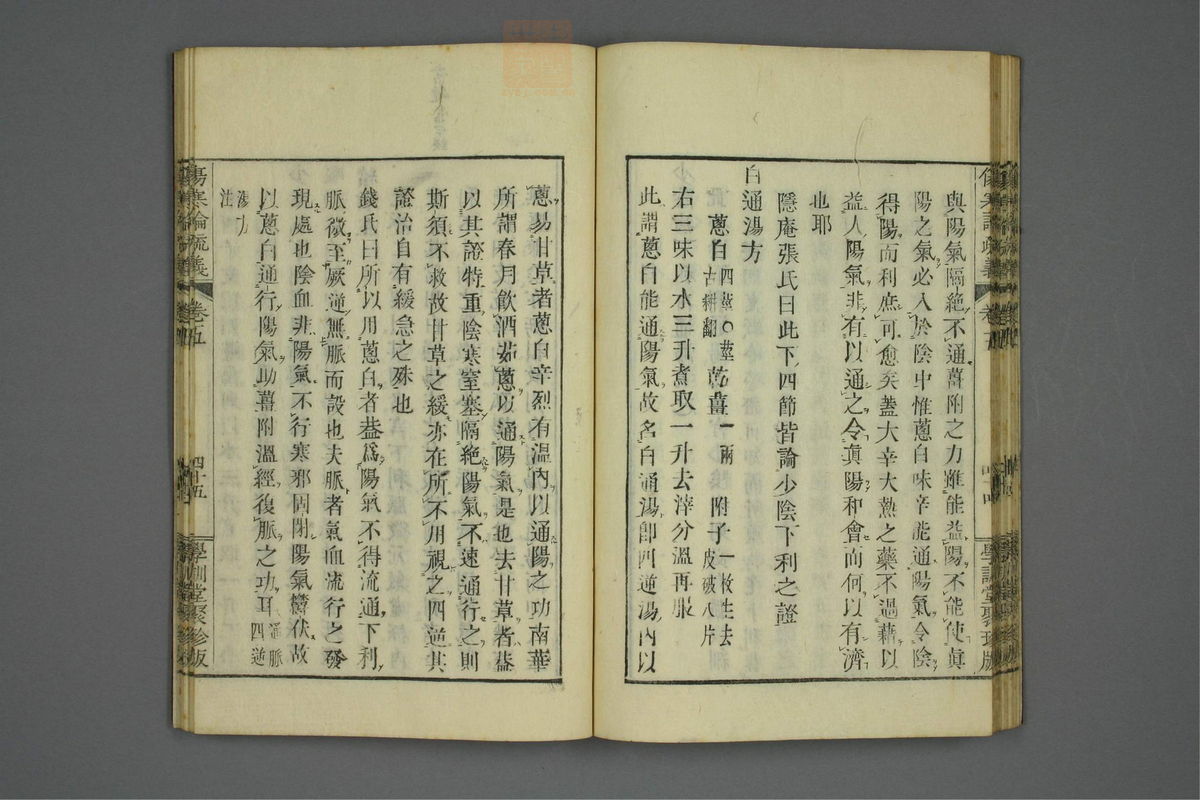 與陽氣隔絶不通薑附之力雖能益陽不能使眞
陽之氣必入於陰中惟蔥白味辛能通陽氣令陰
得陽而利庶可愈矣蓋大辛大熱之藥不過藉以
益人陽氣非有以通之令眞陽和會而何以有濟
也耶
隱庵張氏曰此下四節皆論少陰下利之證
白通湯方
蔥白四莖〇莖古耕翻乾薑一兩附子一枚生去皮破八片
右三味以水三升煮取一升去滓分溫再服
此謂蔥白能通陽氣故名白通湯卽四逆湯內以
蔥易甘草者蔥白辛烈有溫內以通陽之功南華
所謂春月飮酒茹蔥以通陽氣是也去甘草者葢
以其證特重陰寒窒塞隔絶陽氣不速通行之則
斯須不救故甘草之緩亦在所不用視之四逆其
證治自有緩急之殊也
錢氏曰所以用蔥白者葢爲陽氣不得流通下利
脈微至厥逆無脈而設也夫脈者氣血流行之發
現處也陰血非陽氣不行寒邪固閉陽氣鬱伏故
以蔥白通行陽氣助薑附溫經復脈之功耳通脈四逆
湯方
注
傷寒論疏義
卷五
四十五
學訓堂聚珍版